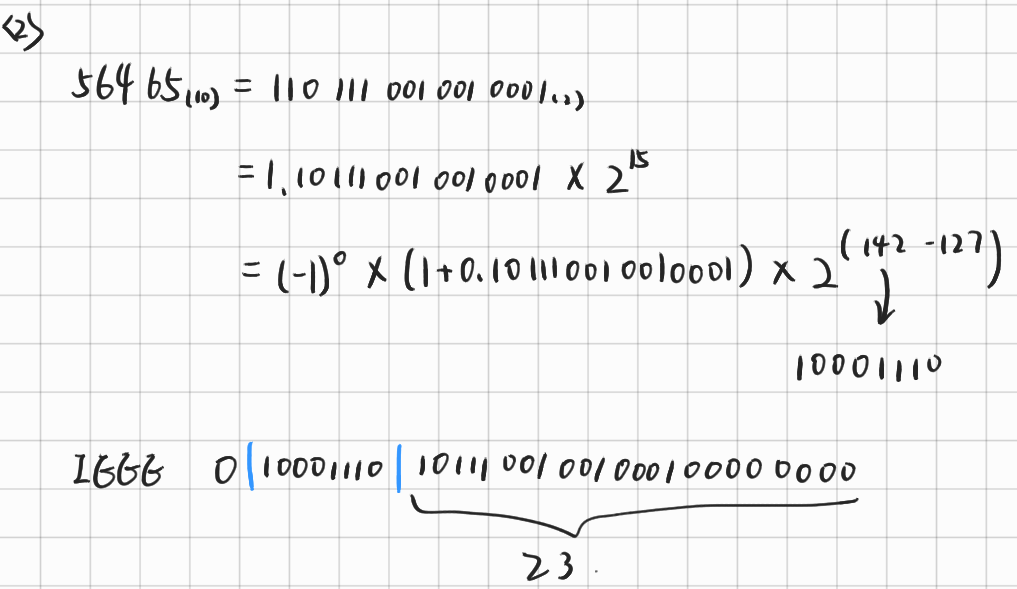 <2>
56465₍₁₀₎ = 110 111 001 001 0001₍₂₎
= 1.10111001 0010001 × 2¹⁵
= (-1)⁰ × (1+0.10111001 0010001) × 2^(142 -127)
↓
10001110
IEEE 0|10001110|10111 001 001 00010000 0000
23